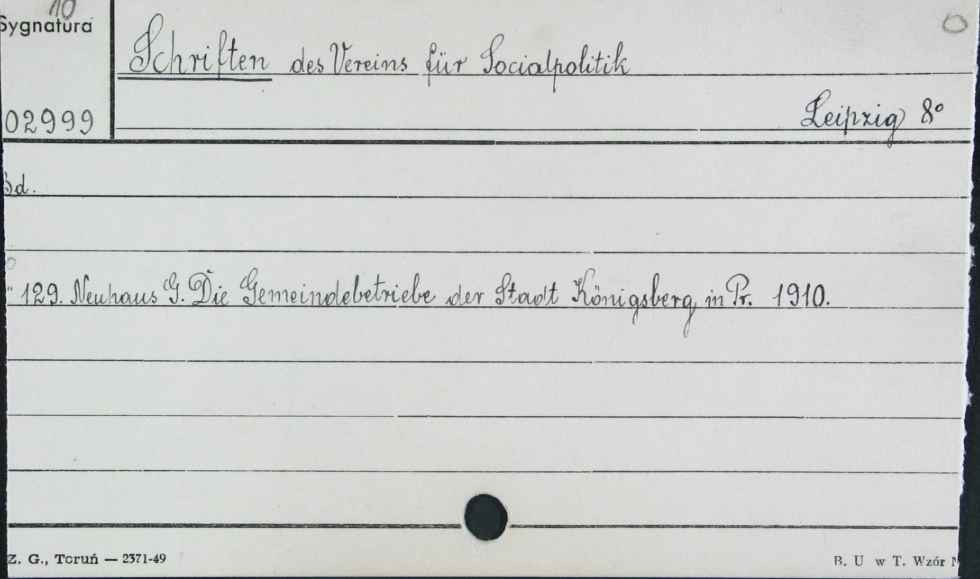 10
Sygnatura
Schriften des Vereins für Socialpolitik
02999
Leipzig 8°
Bd.
" 129. Neuhaus G. Die Gemeindebetriebe der Stadt Königsberg in Pr. 1910.
Z. G., Toruń — 2371-49
B. U w T. Wzór